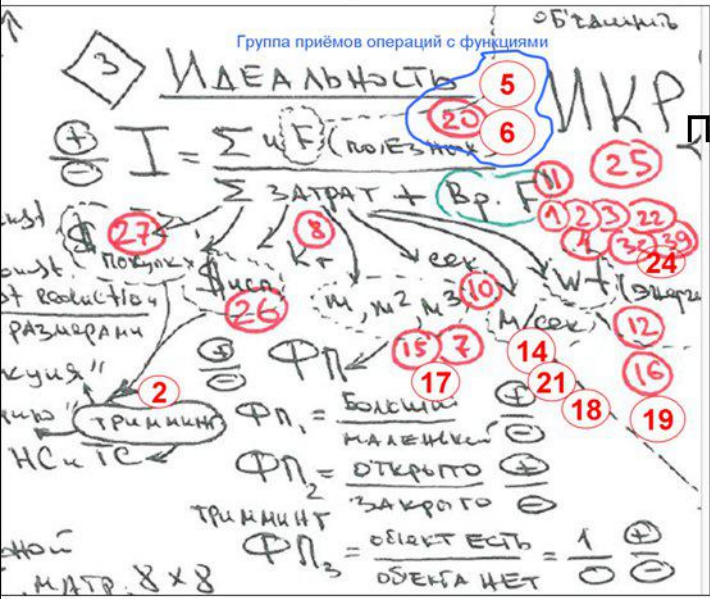 Группа приёмов операций с функциями
3 ИДЕАЛЬНОСТЬ
5
20
6
ИКР
П
⊕/⊖ I = Σ F (полезных
Σ ЗАТРАТ + Вр. F
11
25
1 2 3 22
4 32 39
24
$ 27
покупк
8
кг
сек
Wt
$исп
26
m, m², m³
10
м/сек
reduction
размерами
ФП
15 7
17
14
21
18
12
16
19
2
тримминг
НС и ТС
⊕/⊖
ФП₁ = Большой / маленький ⊕/⊖
ФП₂ = открыто / закрыто ⊕/⊖
тримминг
ФП₃ = объект есть / объекта нет = 1/0 ⊕/⊖
МАТР. 8 x 8